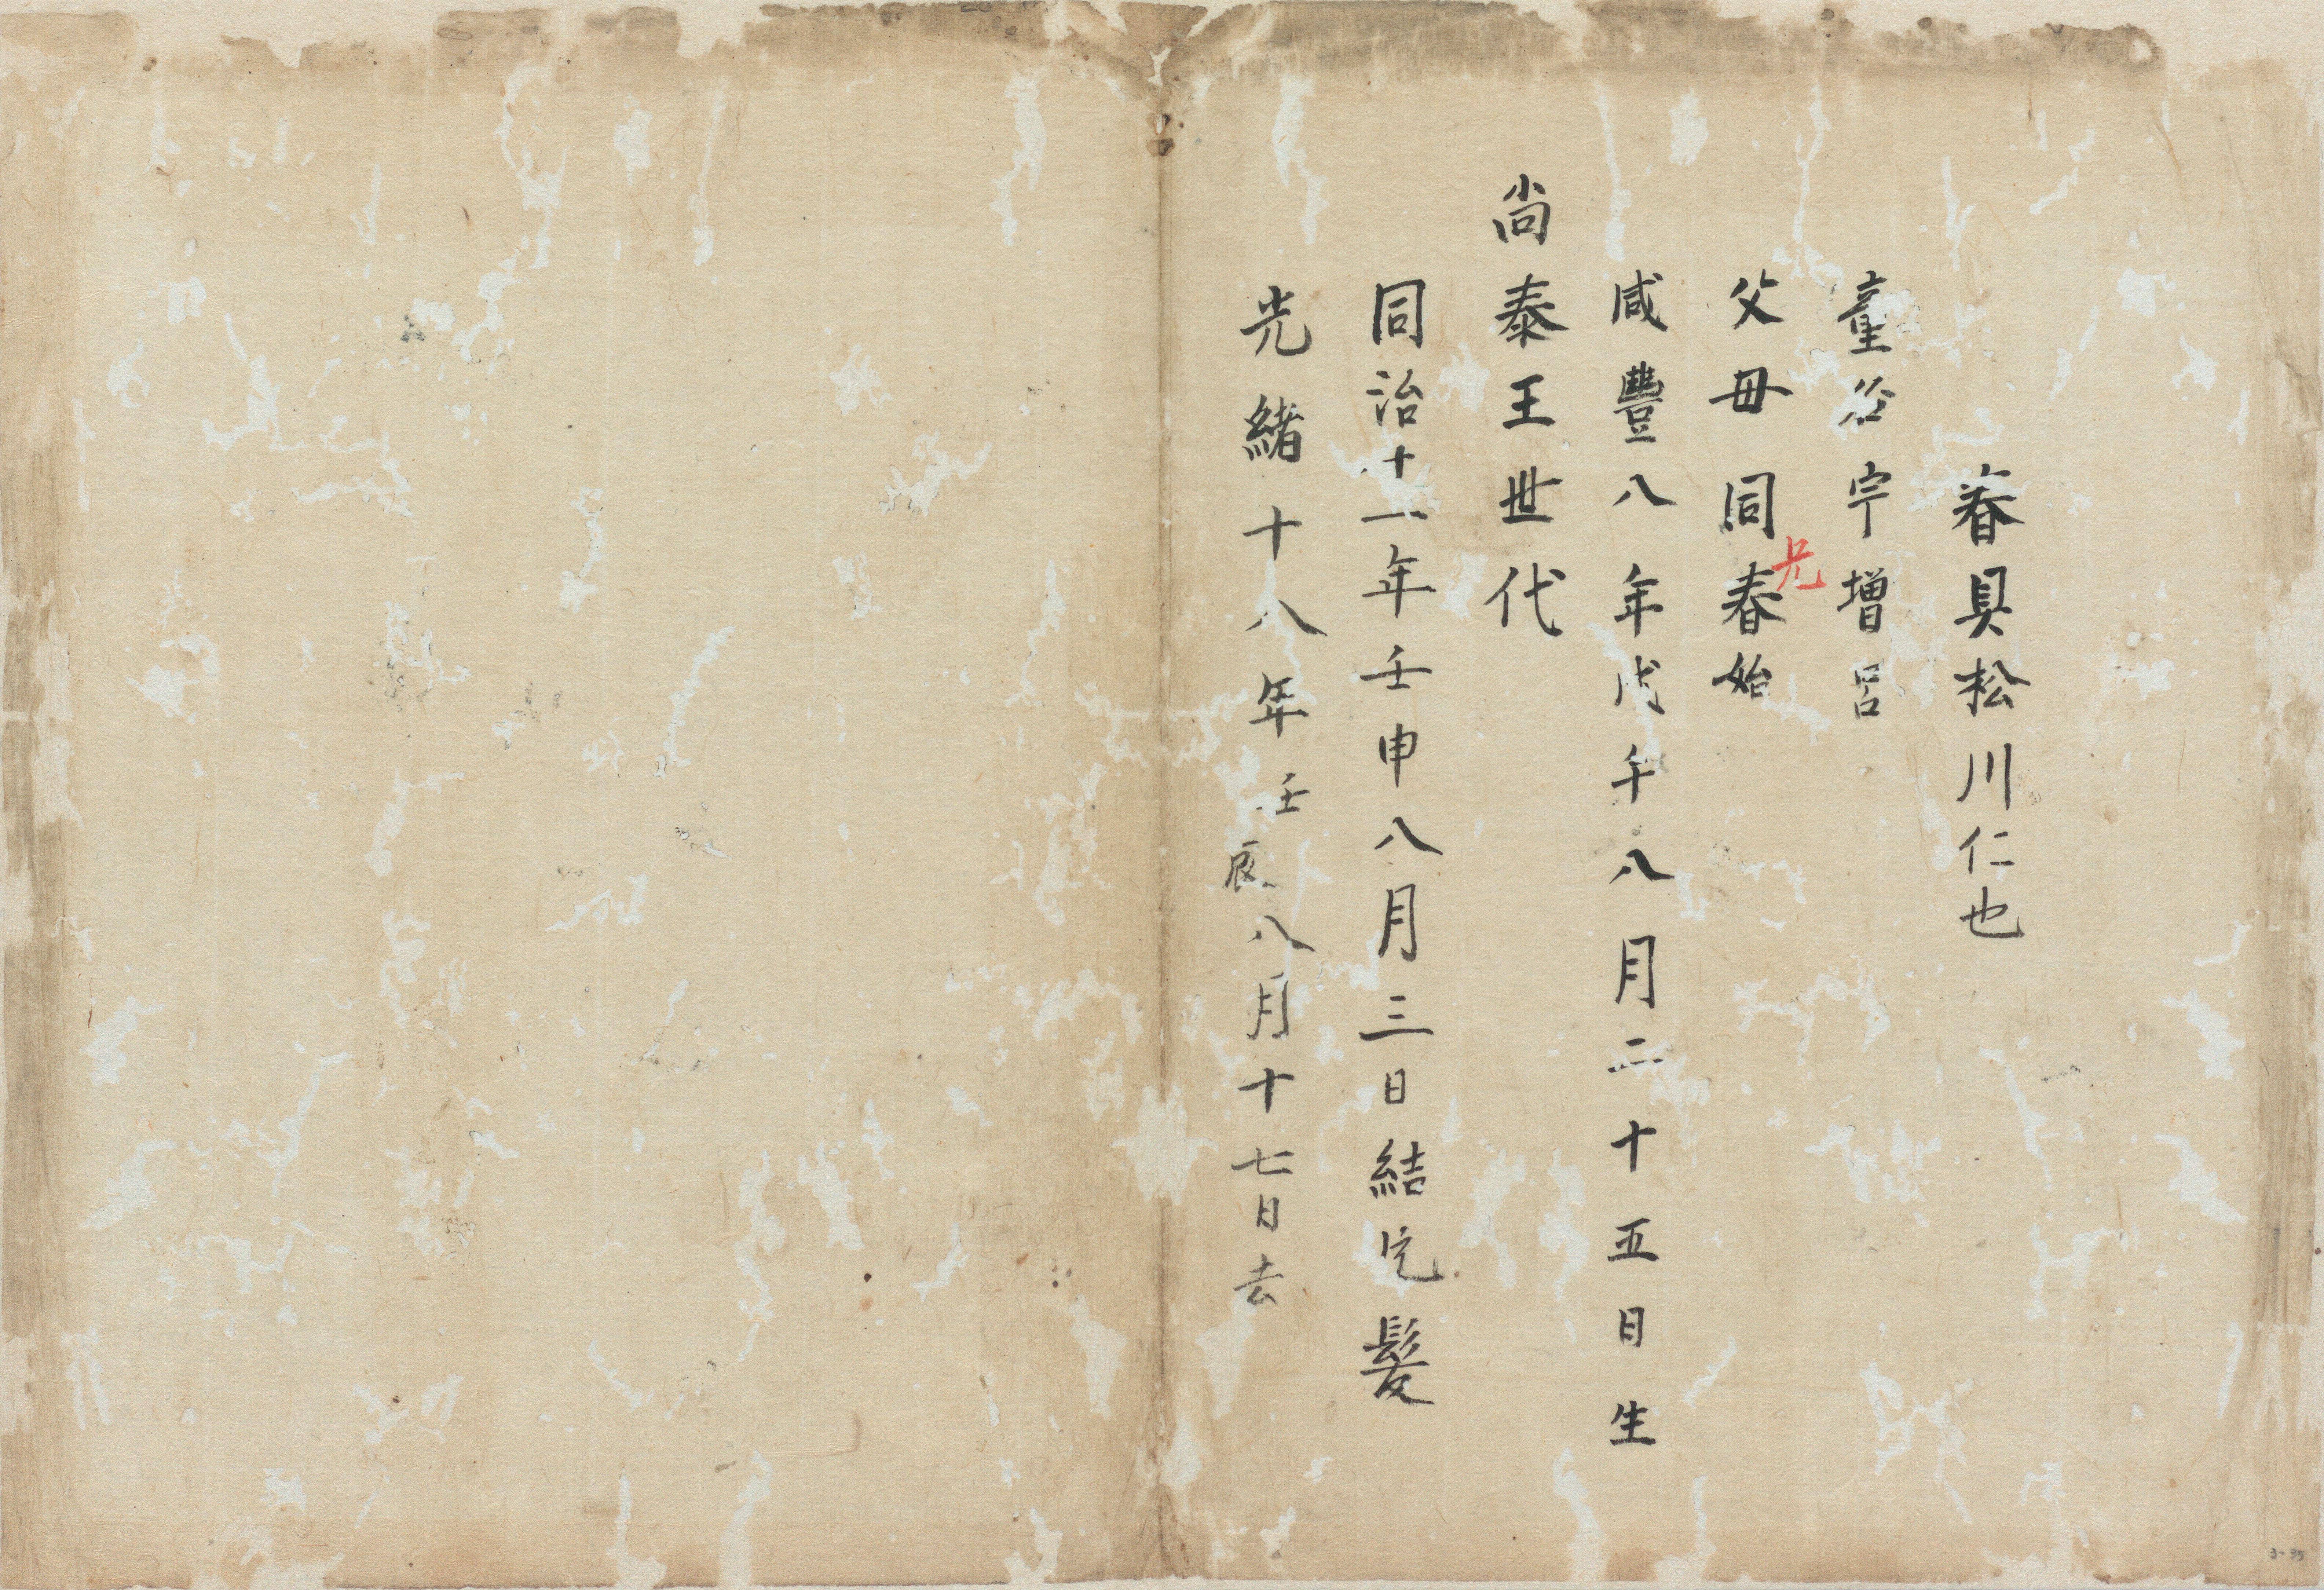 春具松川仁也
童名宇増呂
父母同兄春始
咸豐八年戊午八月二十五日生
尚泰王世代
同治十一年壬申八月三日結完髮
光緒十八年壬辰八月十七日去
3-35